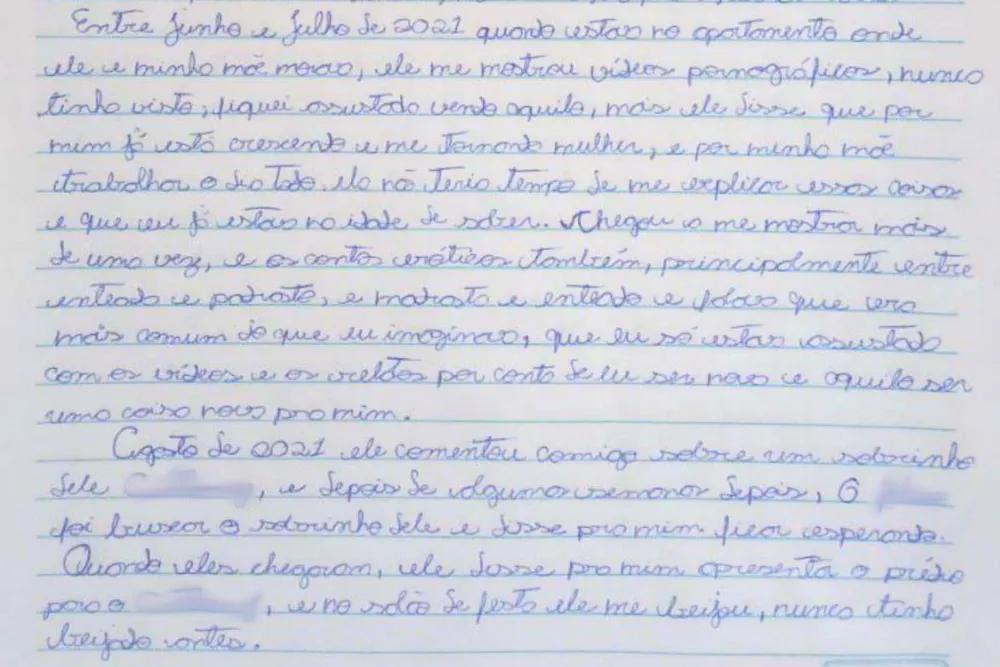 Entre junho e julho de 2021 quando estava no apartamento onde
ele e minha mãe morava, ele me mostrou vídeos pornográficos, nunca
tinha visto, fiquei assustada vendo aquilo, mais ele disse que por
mim já está crescendo e me tornando mulher, e por minha mãe
trabalhar o dia todo, ela não teria tempo de me explicar essas coisas
e que eu já estava na idade de saber. Chegou a me mostrar mais
de uma vez, e os contos eróticos também, principalmente entre
enteada e padrasto, e madrasta e enteado e falava que era
mais comum do que eu imaginava, que eu só estava assustada
com os vídeos e os relatos por conta de eu ser nova e aquilo ser
uma coisa nova pra mim.
Agosto de 2021 ele comentou comigo sobre um sobrinho
dele , e depois de algumas semanas depois, O
foi buscar o sobrinho dele e disse pra mim ficar esperando.
Quando eles chegaram, ele disse pra mim apresenta o prédio
para o , e no salão de festa ele me beijou, nunca tinha
beijado antes.